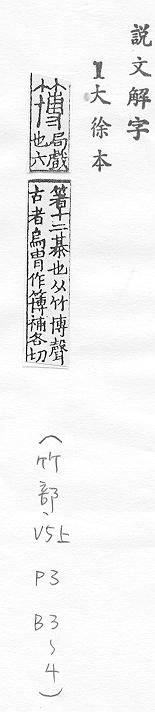 説文解字
1大徐本
簙 局戲也六
箸十二棊也从竹博聲
古者烏胄作簙補各切
(竹部、V5上 P3 B3~4)